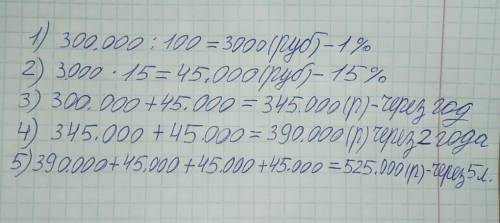 1) 300.000 : 100 = 3000 (руб) - 1%
2) 3.000 · 15 = 45.000 (руб) - 15%
3) 300.000 + 45.000 = 345.000 (р) - через год
4) 345.000 + 45.000 = 390.000 (р) через 2 года
5) 390.000 + 45.000 + 45.000 + 45.000 = 525.000 (р) - через 5 л.